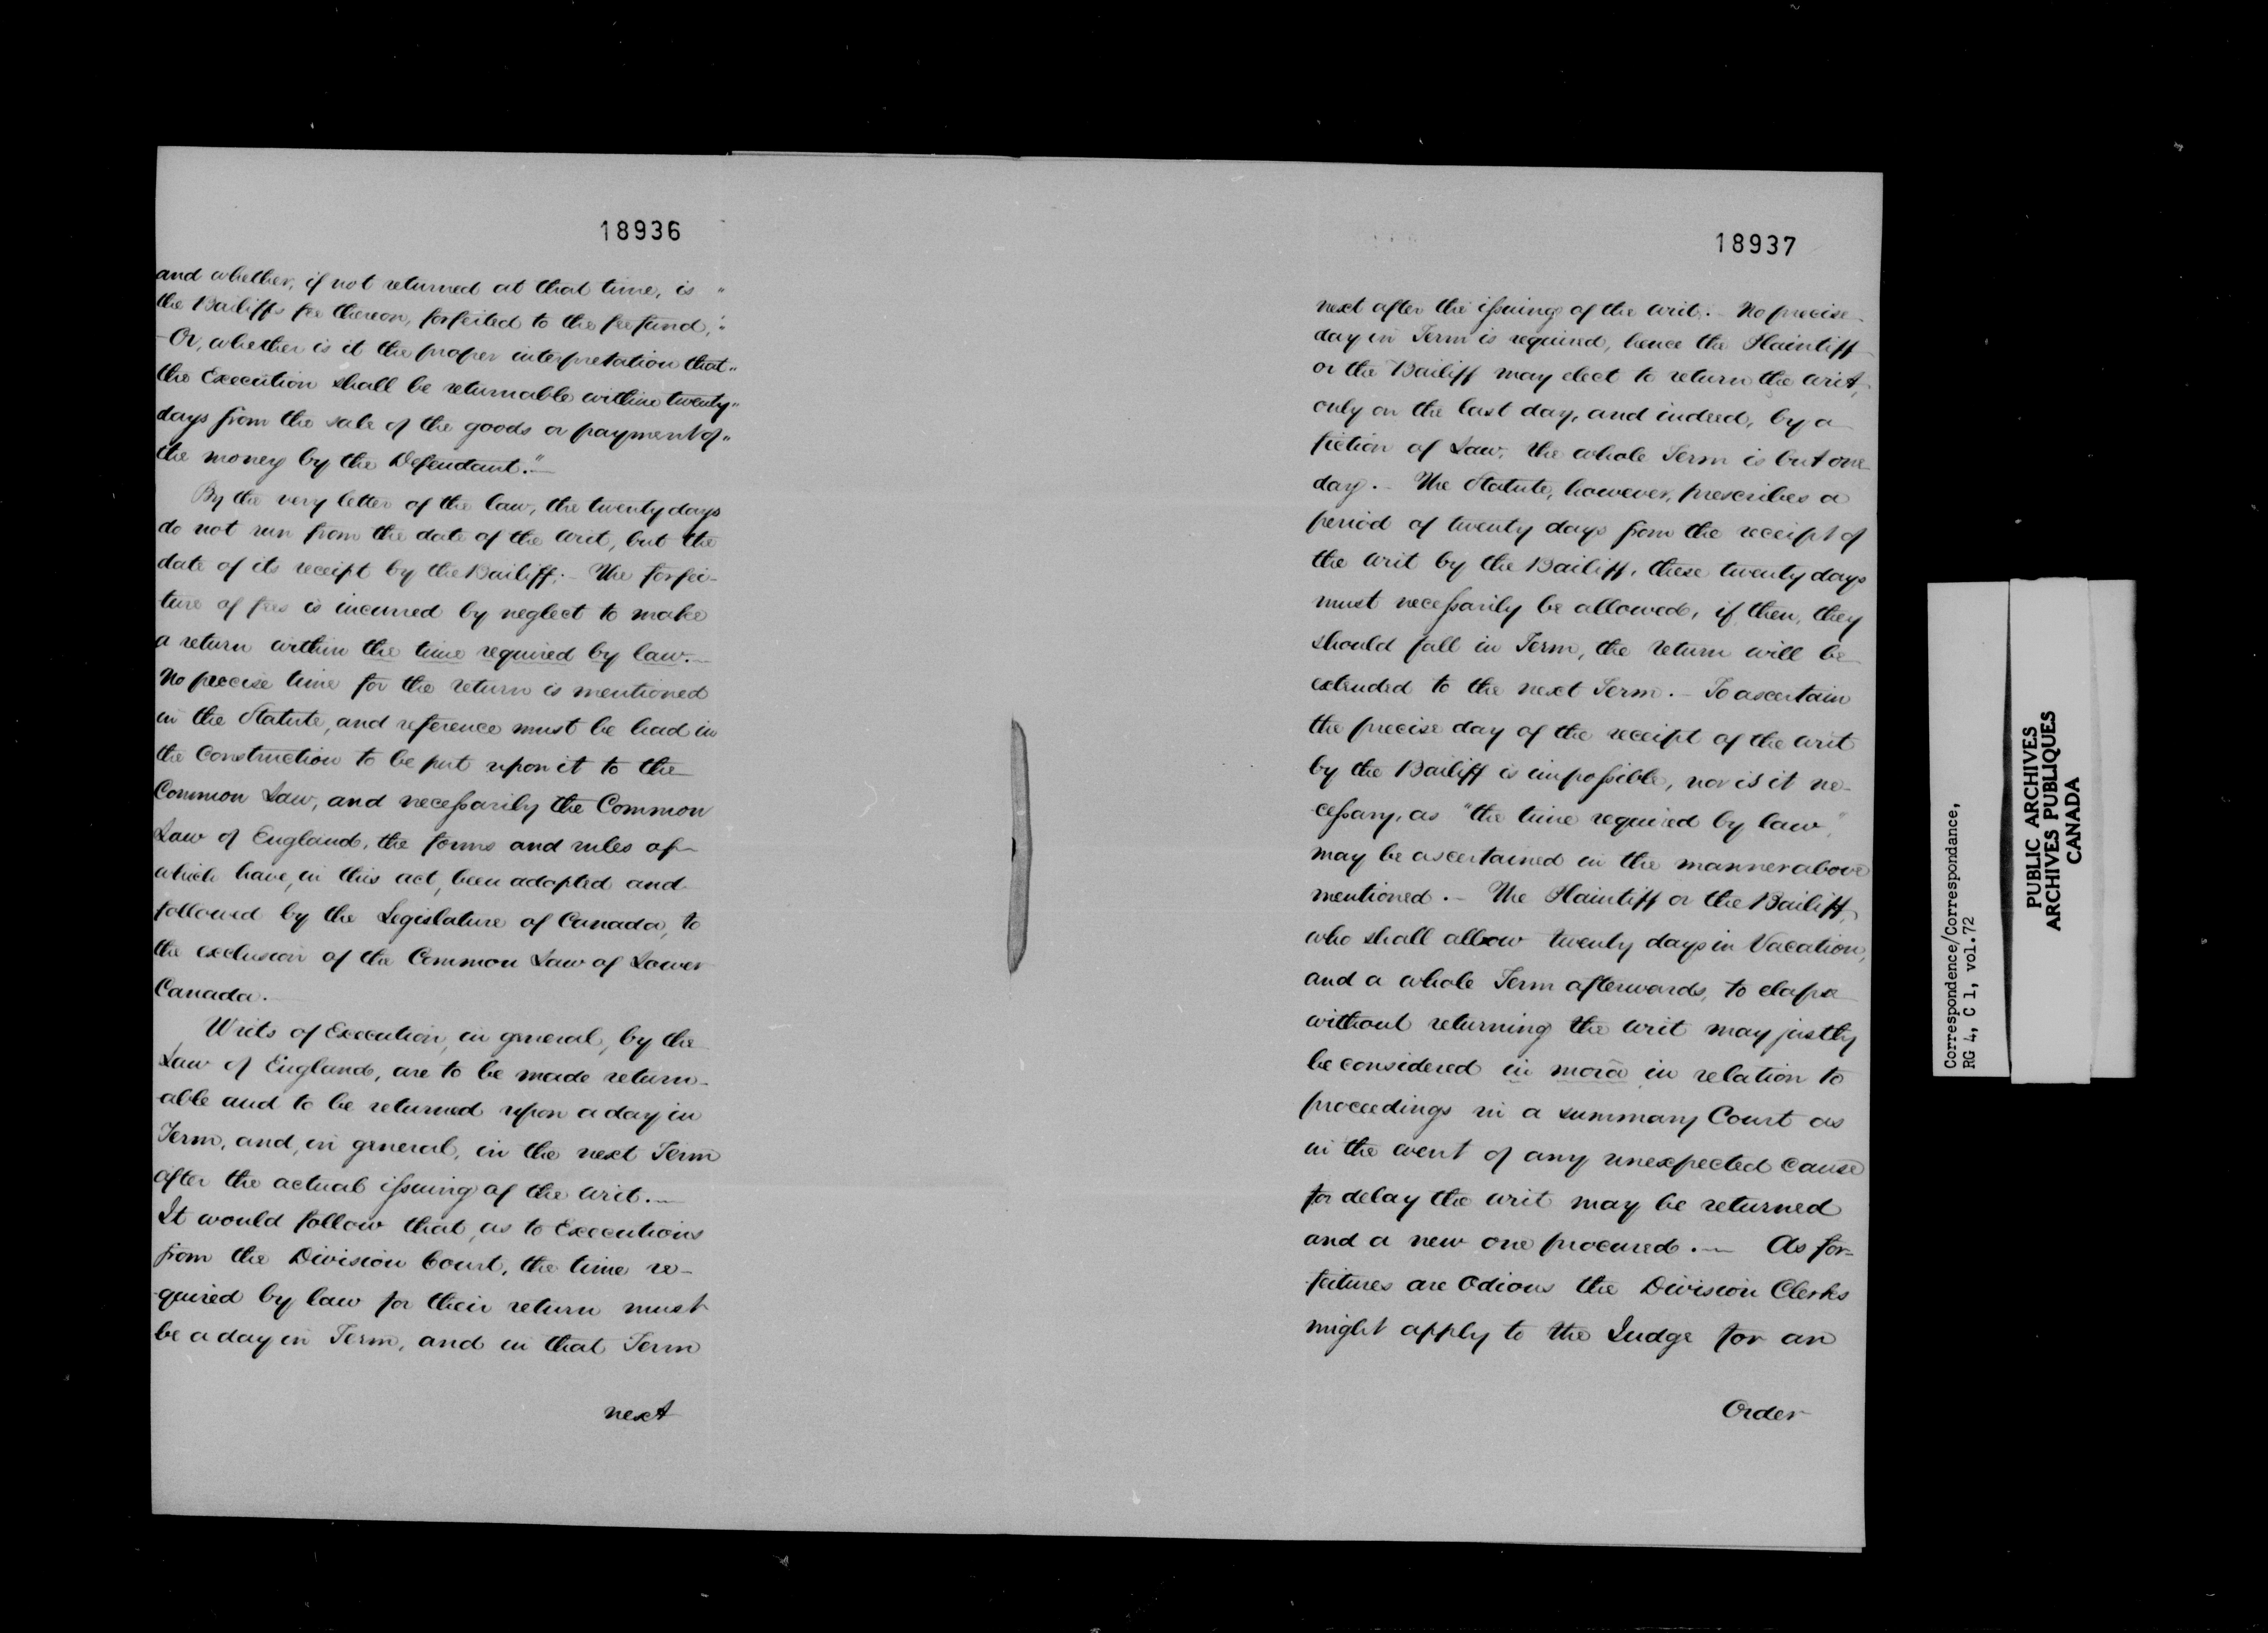 18936
and whether, if not returned at that time, is "
the Bailiffs fee thereon, forfeited to the fee fund, "
- Or, whether is it the proper interpretation that "
the Execution shall be returnable within twenty "
days from the sale of the goods or payment of "
the money by the Defendant." —
By the very letter of the law, the twenty days
do not run from the date of the writ, but the
date of its receipt by the Bailiff. - The forfei-
ture of fees is incurred by neglect to make
a return within the time required by law. —
No precise time for the return is mentioned
in the Statute, and reference must be had in
the construction to be put upon it to the
Common Law, and necessarily the Common
Law of England, the forms and rules of
which have, in this act, been adopted and
followed by the Legislature of Canada, to
the exclusion of the Common Law of Lower
Canada. —
Writs of Execution, in general, by the
Law of England, are to be made return-
able and to be returned upon a day in
Term, and, in general, in the next Term
after the actual issuing of the writ. —
It would follow that, as to Executions
from the Division Court, the time re-
quired by law for their return must
be a day in Term, and in that Term
next
18937
next after the issuing of the writ. - No precise
day in Term is required, hence the Plaintiff
or the Bailiff may elect to return the writ,
only on the last day, and indeed, by a
fiction of Law, the whole Term is but one
day. - The Statute, however, prescribes a
period of twenty days from the receipt of
the writ by the Bailiff, these twenty days
must necessarily be allowed, if then, they
should fall in Term, the return will be
extended to the next Term. - To ascertain
the precise day of the receipt of the writ
by the Bailiff is impossible, nor is it ne-
cessary, as "the time required by law,"
may be ascertained in the manner above
mentioned. - The Plaintiff or the Bailiff,
who shall allow twenty days in Vacation,
and a whole Term afterwards, to elapse
without returning the writ may justly
be considered in morâ in relation to
proceedings in a summary Court as
in the event of any unexpected cause
for delay the writ may be returned
and a new one procured. — As for-
feitures are Odious the Division Clerks
might apply to the Judge for an
Order
Correspondence/Correspondance,
RG 4, C 1, vol.72
PUBLIC ARCHIVES
ARCHIVES PUBLIQUES
CANADA